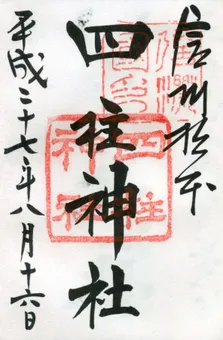 信州松本
四柱神社
平成二十七年八月十六日
四柱
神社